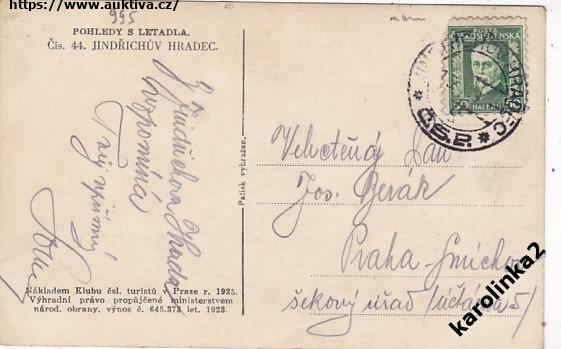 https://www.auktiva.cz/
995
POHLEDY S LETADLA.
Čís. 44. JINDŘICHŮV HRADEC.
Z Jindřichova Hradce
vzpomíná
Tvůj upřímný
Tištisk vyhražen.
Nákladem Klubu čsl. turistů v Praze r. 1925.
Výhradní právo propůjčené ministerstvem
národ. obrany, výnos č. 645.373 let. 1923.
ČESKOSLOVENSKÁ
50 HALÉŘŮ
HRADEC
Č.S.P.
Velectěný Pan
Jos. Berák
Praha-Smíchov
šekový úřad (účtárna 5)
karolinka2